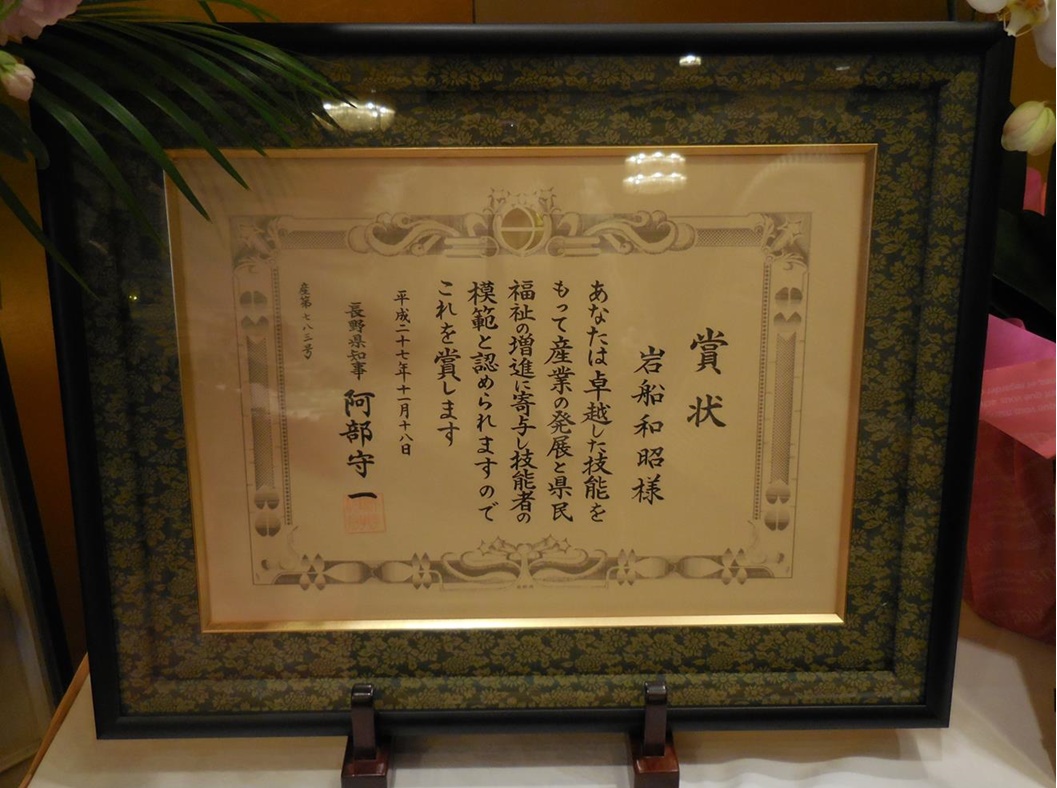 賞状
岩船和昭様
あなたは卓越した技能を
もって産業の発展と県民
福祉の増進に寄与し技能者の
模範と認められますので
これを賞します
平成二十七年十一月十八日
長野県知事 阿部守一
産第七八三号